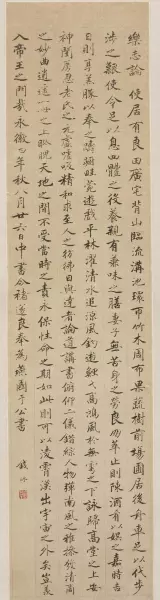 樂志論 使居有良田廣宅背山臨流溝池環帀竹木周布果蔬樹前場圃居後舟車足以代步
涉之艱使令足以息四體之役養親有兼味之膳妻子無苦身之勞良朋萃止則陳酒肴以娛之嘉時吉
日則烹羔豚以奉之躊躇畦苑遊戲平林濯清水追涼風釣遊鯉弋高鴻風於舞雩之下詠歸高堂之上安
神閨房思老氏之元虛呼吸精和求至人之彷彿與達者論道講書俯仰二儀錯綜人物彈南風之雅操發清商
之妙曲逍遙一世之上睥睨天地之間不受當時之責永保性命之期如此則可以凌霄漢出宇宙之外矣豈羨夫
入帝王之門哉永徽乙年秋八月廿六日中書令褚遂良奉為燕國于公書